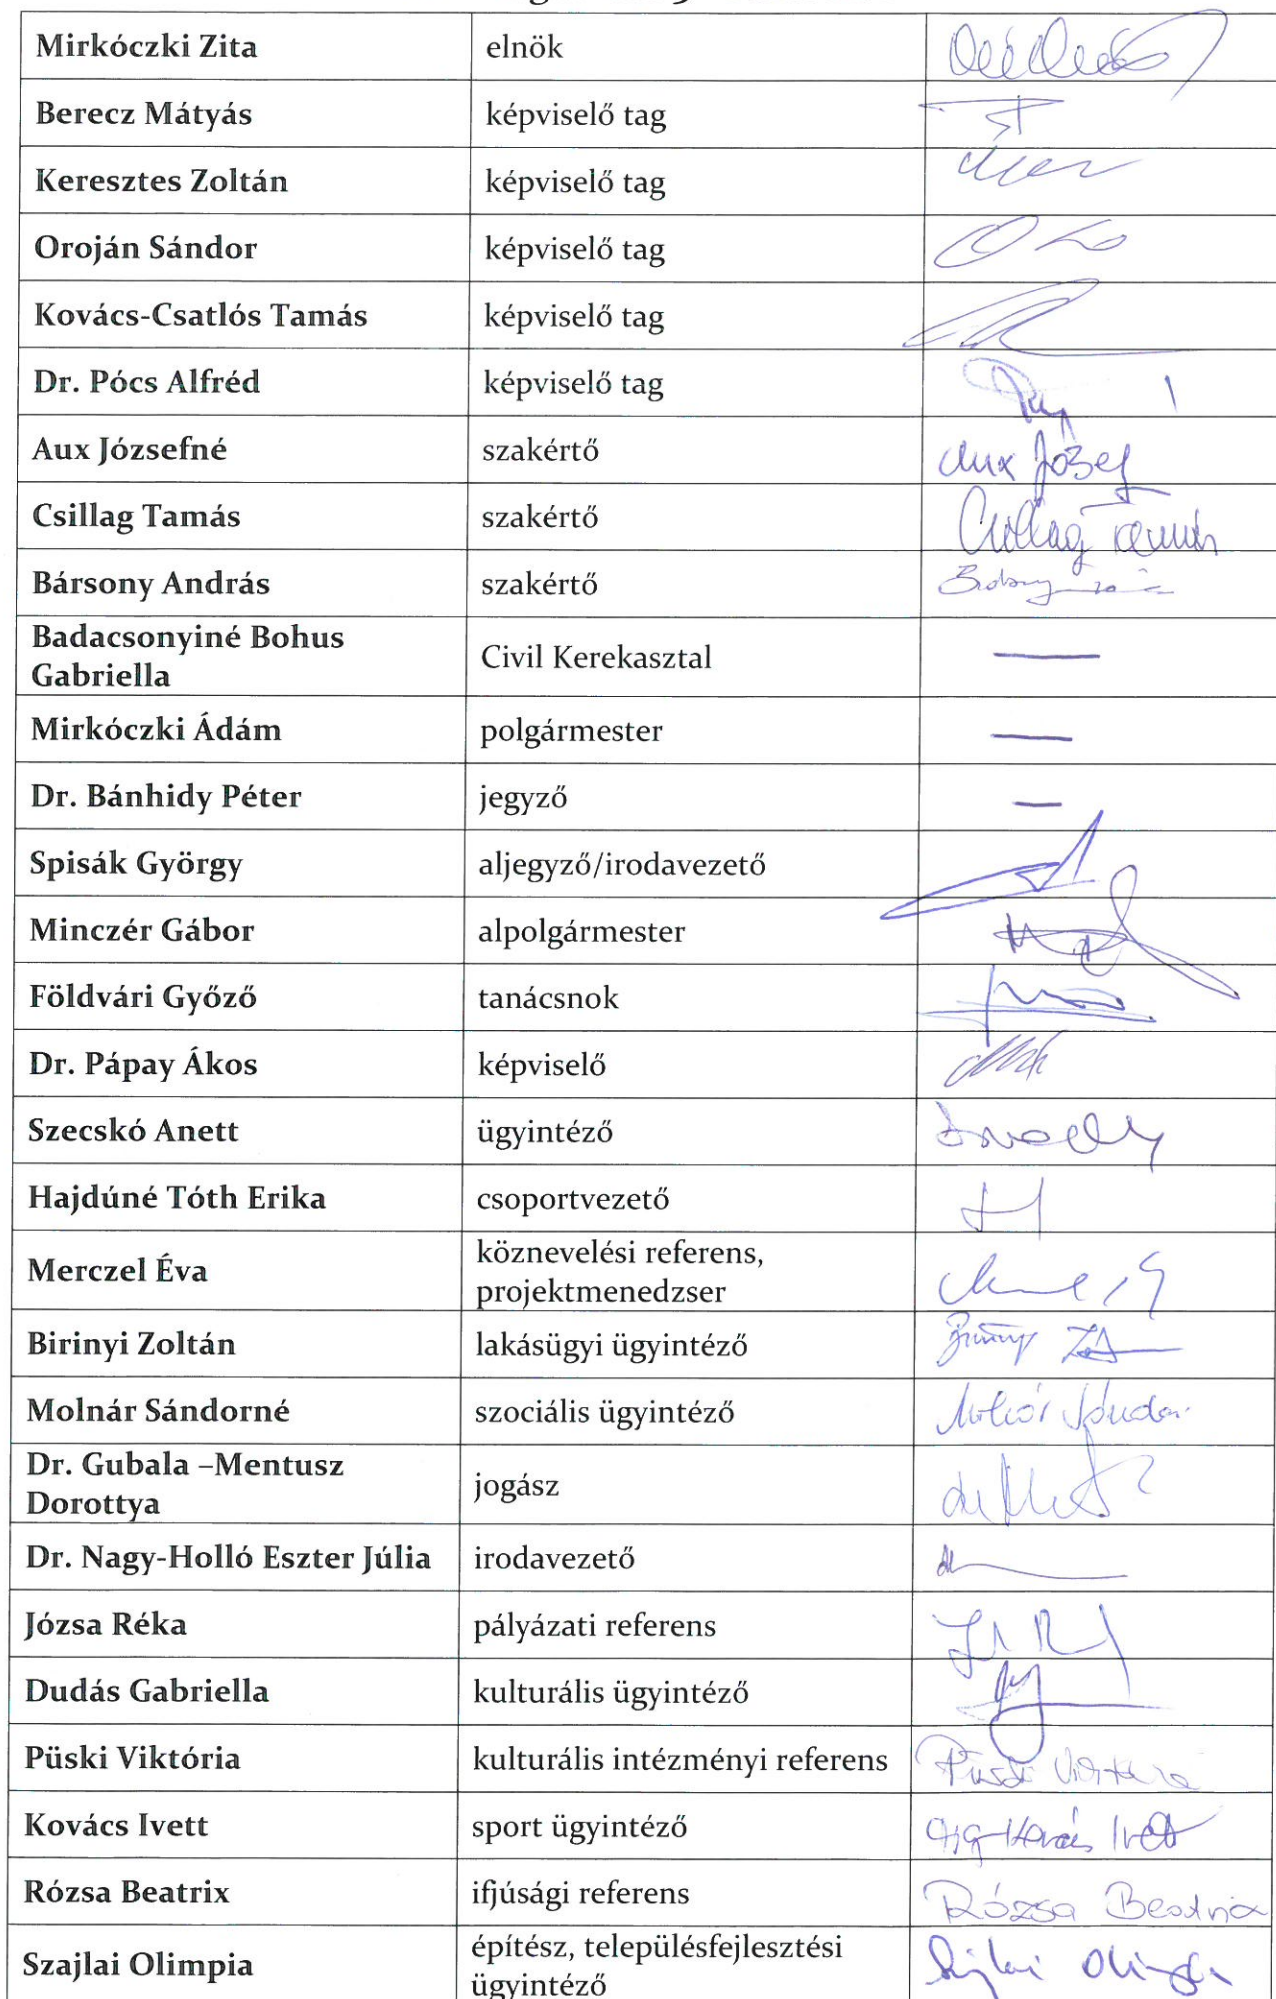 Mirkóczki Zita elnök
Berecz Mátyás képviselő tag
Keresztes Zoltán képviselő tag
Oroján Sándor képviselő tag
Kovács-Csatlós Tamás képviselő tag
Dr. Pócs Alfréd képviselő tag
Aux Józsefné szakértő Aux József
Csillag Tamás szakértő Csillag Tamás
Bársony András szakértő
Badacsonyiné Bohus
Gabriella
Civil Kerekasztal —
Mirkóczki Ádám polgármester —
Dr. Bánhidy Péter jegyző —
Spisák György aljegyző/irodavezető
Minczér Gábor alpolgármester
Földvári Győző tanácsnok
Dr. Pápay Ákos képviselő
Szecskó Anett ügyintéző
Hajdúné Tóth Erika csoportvezető
Merczel Éva
köznevelési referens,
projektmenedzser
Birinyi Zoltán lakásügyi ügyintéző
Molnár Sándorné szociális ügyintéző
Dr. Gubala –Mentusz
Dorottya
jogász
Dr. Nagy-Holló Eszter Júlia irodavezető
Józsa Réka pályázati referens
Dudás Gabriella kulturális ügyintéző
Püski Viktória kulturális intézményi referens Püski Viktória
Kovács Ivett sport ügyintéző Kovács Ivett
Rózsa Beatrix ifjúsági referens Rózsa Beatrix
Szajlai Olimpia
építész, településfejlesztési
ügyintéző
Szajlai Olimpia